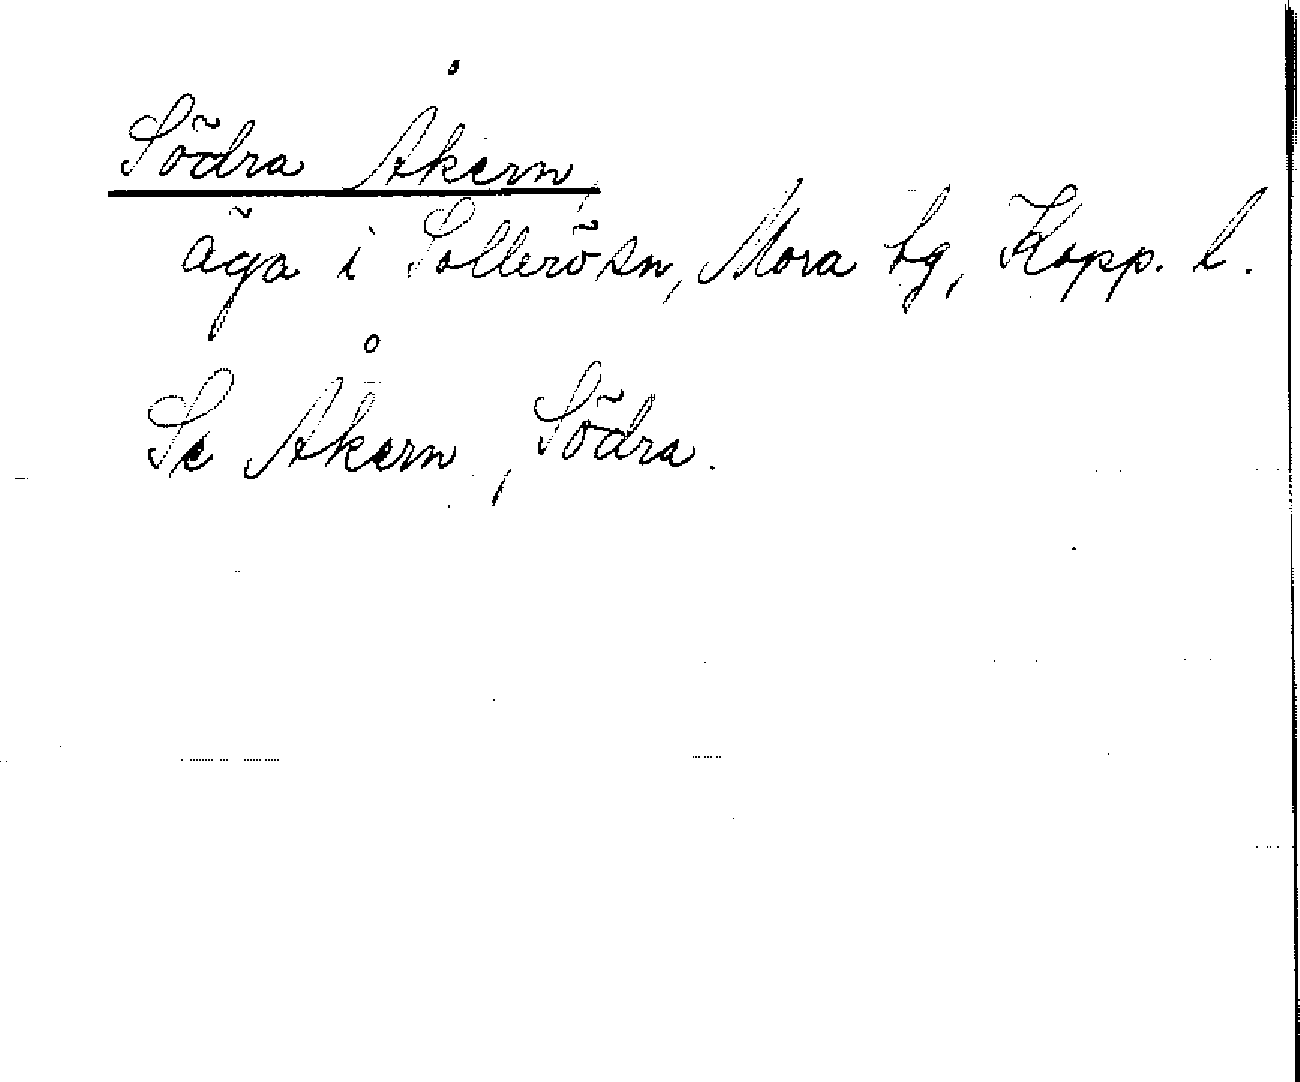 Södra Åkern,
äga i Sollerö sn, Mora tg, Kopp. l.
Se Åkern, Södra.